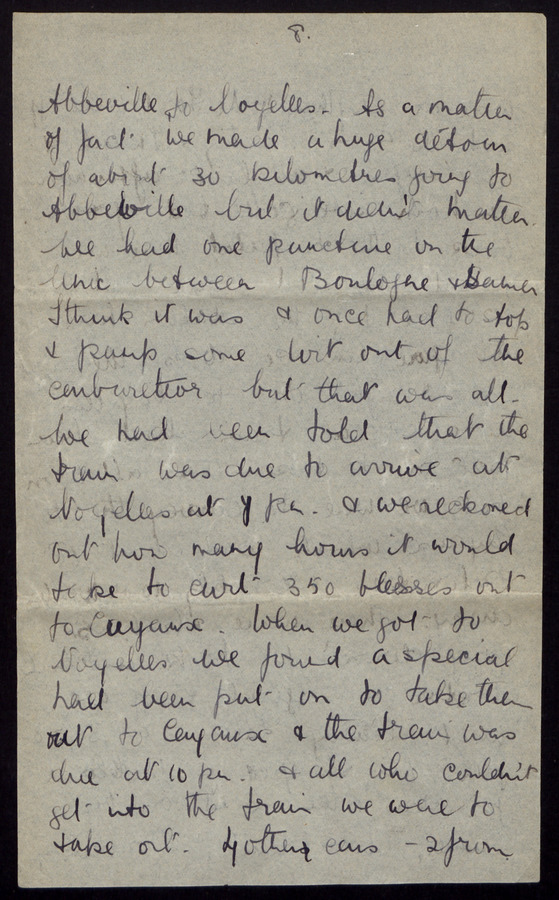 8.
Abbeville to Noyelles. As a matter
of fact we made a huge détour
of about 30 kilometres going to
Abbeville but it didn't matter.
We had one puncture on the
line between Boulogne & Samer
I think it was & once had to stop
& pump some dirt out of the
carburettor but that was all.
We had been told that the
train was due to arrive at
Noyelles at 7 pm. & we reckoned
out how many hours it would
take to cart 350 blessés out
to Cayeux. When we got to
Noyelles we found a special
had been put on to take them
out to Cayeux & the train was
due at 10 pm. & all who couldn't
get into the train we were to
take out. 4 other cars - 2 from